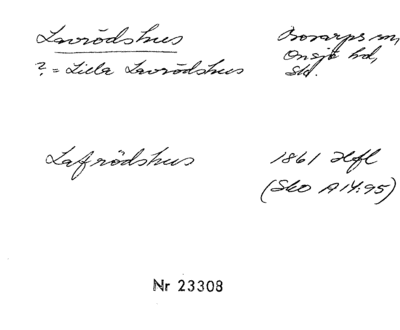 Lavrödshus
Bosarps sn,
Onsjö hd,
Sk.
? = Lilla Lavrödshus
Lafrödshus
1861 Hfl
(Sko A14:95)
Nr 23308